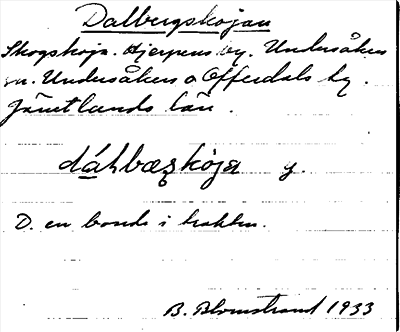 Dalbergskojan
Skogskoja. Hjerpens by. Undersåkers
sn. Undersåkers o Offerdals tg.
Jämtlands län.
dáɫbæʂkòja f.
D. en bonde i trakten.
B. Blomstrand 1933